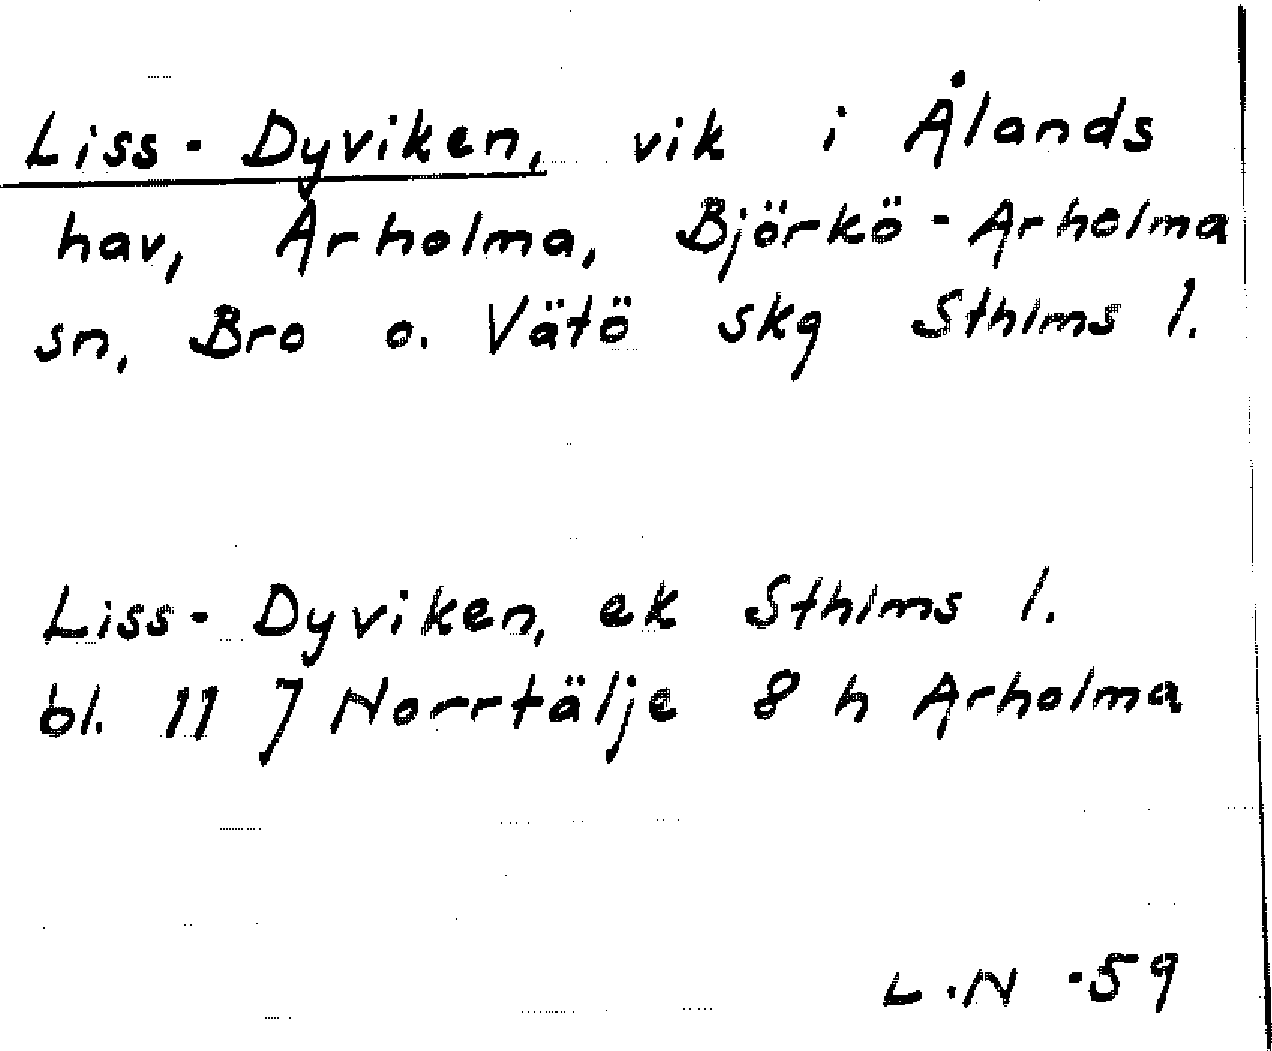 Liss-Dyviken, vik i Ålands
hav, Arholma, Björkö-Arholma
sn, Bro o. Vätö skg Sthlms l.
Liss-Dyviken, ek Sthlms l.
bl. 11 J Norrtälje 8 h Arholma
L.N -59